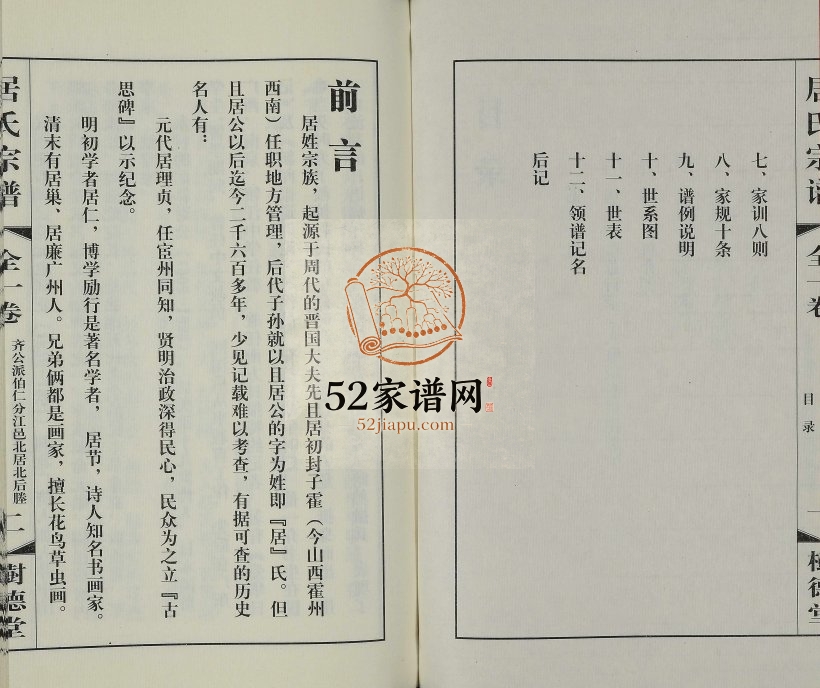 居氏宗谱
全一卷
目录
一
树德堂
七、家训八则
八、家规十条
九、谱例说明
十、世系图
十一、世表
十二、领谱记名
后记
前言
居姓宗族，起源于周代的晋国大夫先且居初封子霍（今山西霍州
西南）任职地方管理，后代子孙就以且居公的字为姓即『居』氏。但
且居公以后迄今二千六百多年，少见记载难以考查，有据可查的历史
名人有：
元代居理贞，任宦州同知，贤明治政深得民心，民众为之立『古
思碑』以示纪念。
明初学者居仁，博学励行是著名学者，居节，诗人知名书画家。
清末有居巢、居廉广州人。兄弟俩都是画家，擅长花鸟草虫画。
居氏宗谱
全一卷
齐公派伯仁分江邑北居北后塍
二
树德堂
52家谱网
52jiapu.com